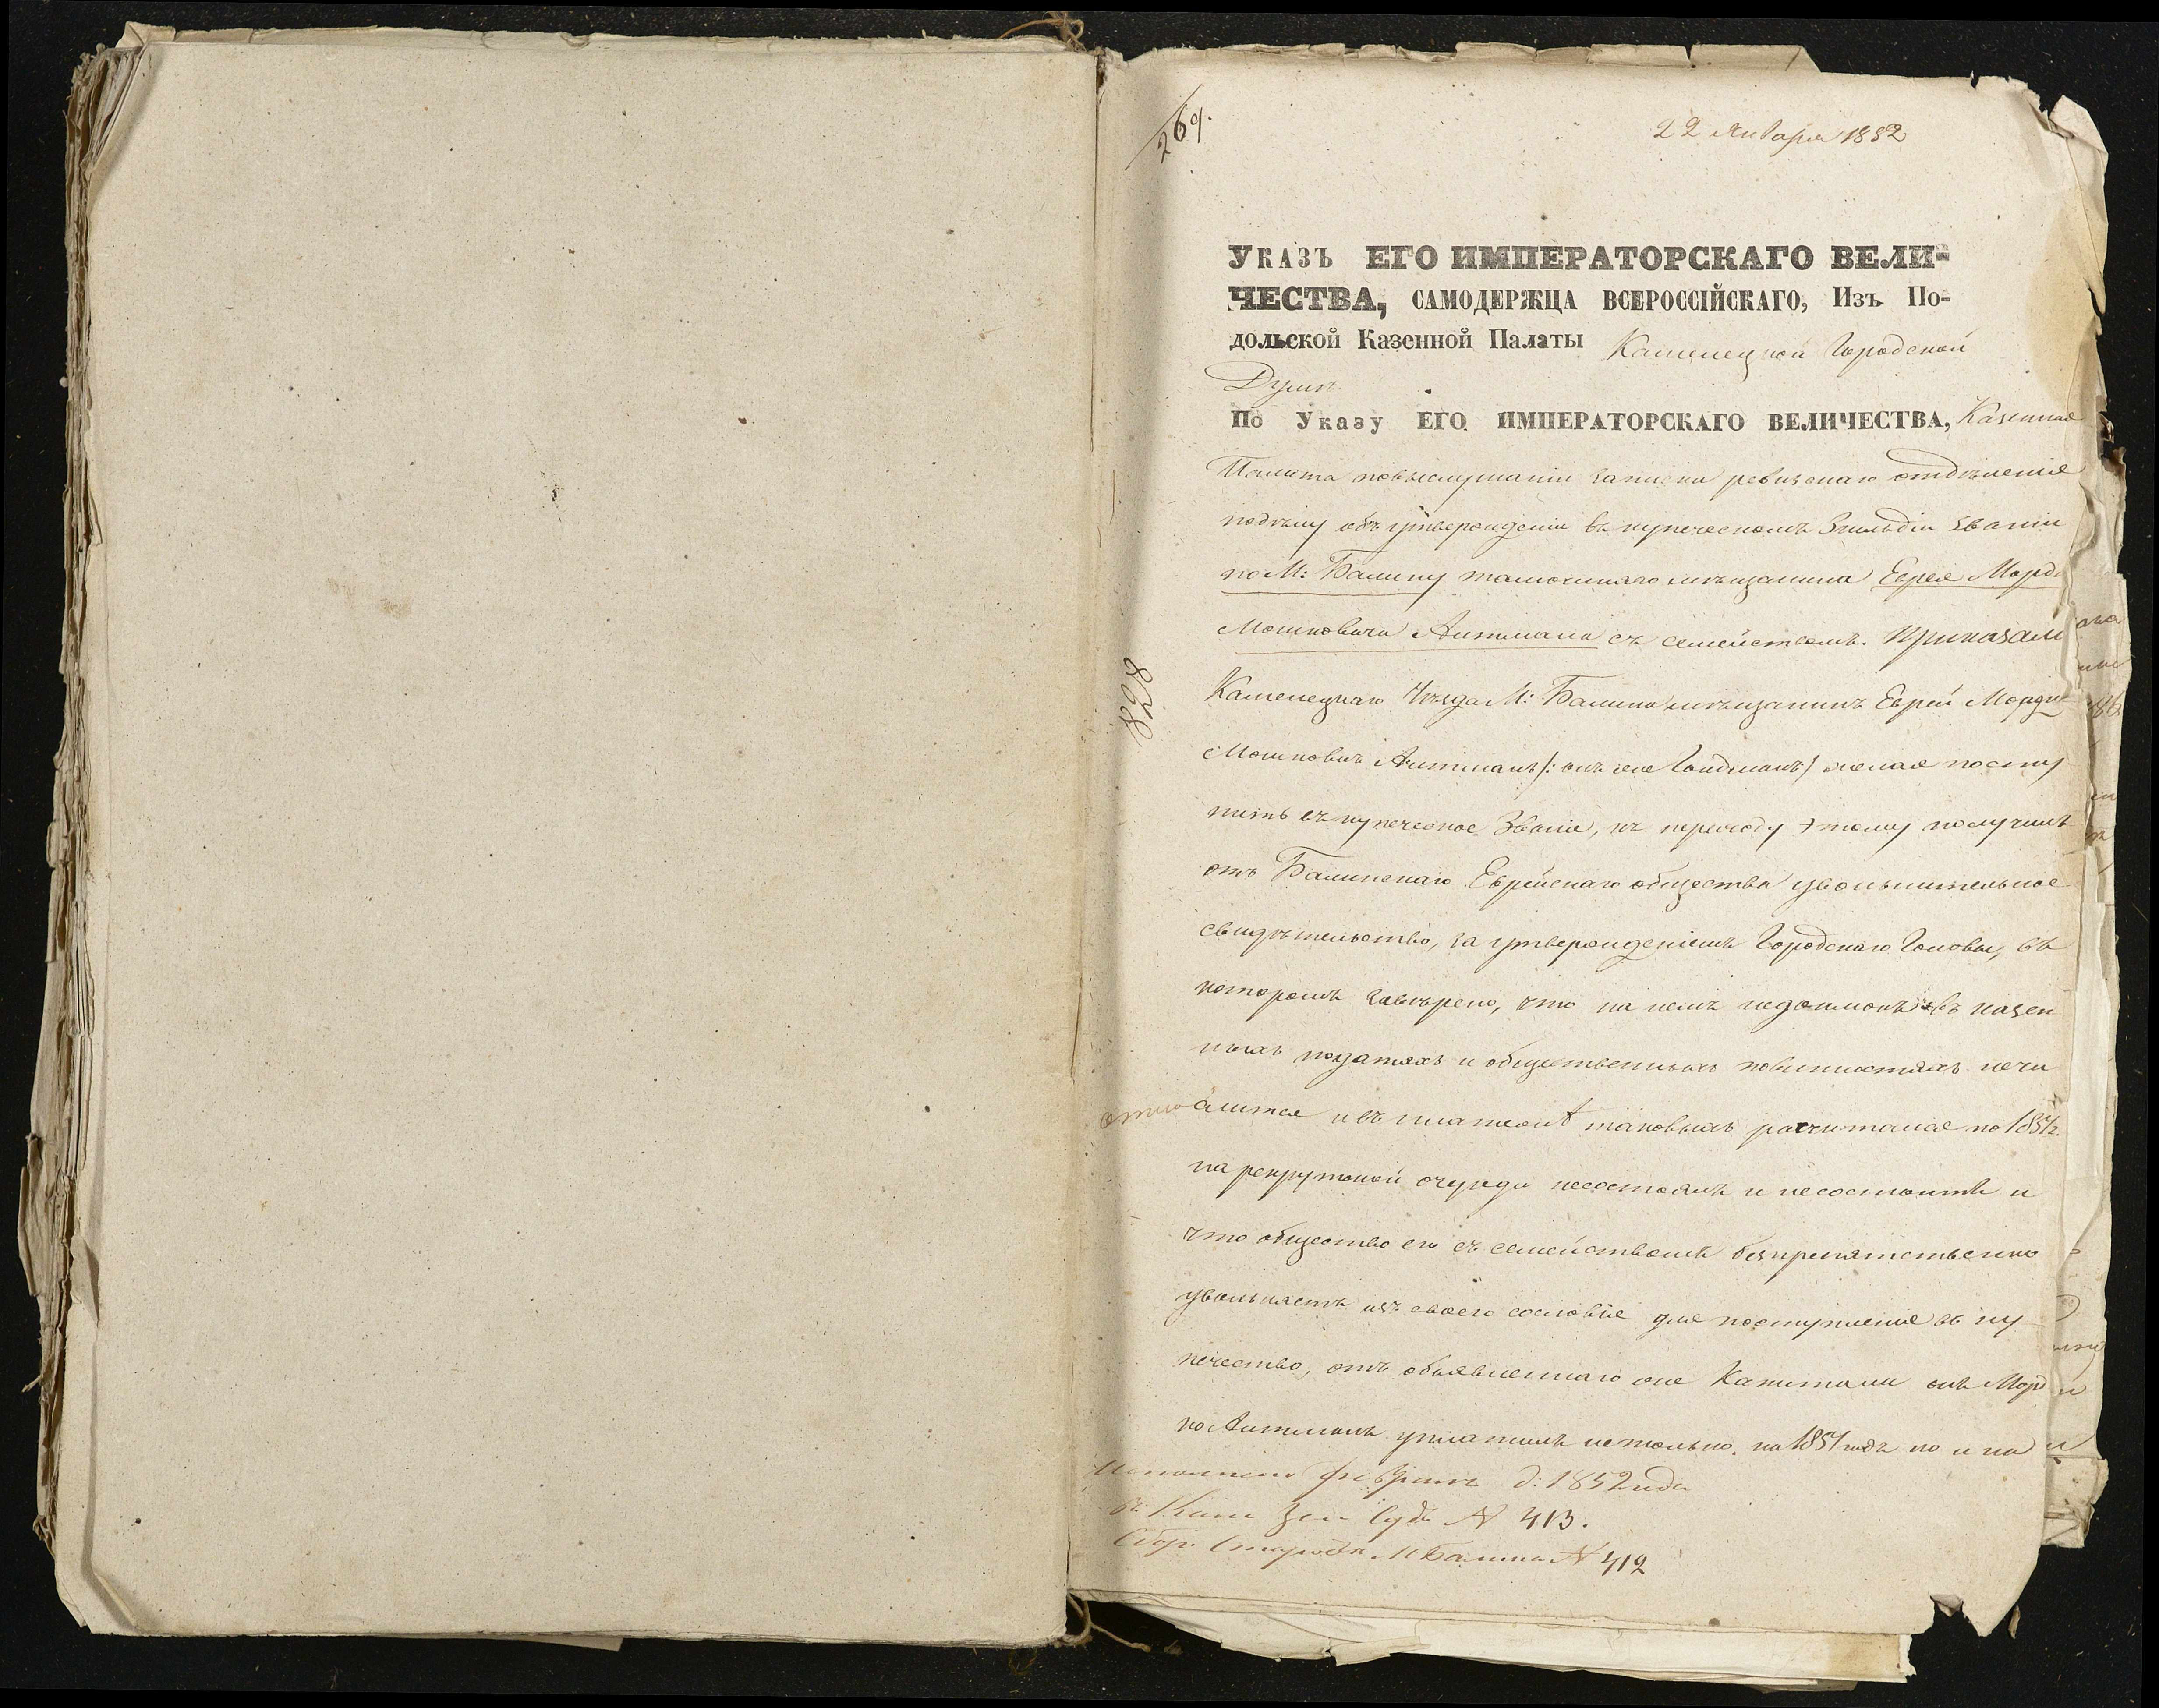 269.
22 Января 1852
Указъ ЕГО ИМПЕРАТОРСКАГО ВЕЛИ-
ЧЕСТВА, САМОДЕРЖЦА ВСЕРОССІЙСКАГО, Изъ По-
дольской Казенной Палаты Каменецкой Городской
Думѣ
По Указу ЕГО ИМПЕРАТОРСКАГО ВЕЛИЧЕСТВА, Казенная
Палата повыслушаніи записки ревизскаго отдѣленія
объ утвержденіи въ купеческомъ 3 гильдіи званіи
по М: Балину тамошняго мѣщанина Еврея Мордк
Мошковича Антмана съ семействомъ. Приказали
828
Каменецкаго Уѣзда М: Балина мѣщанинъ Еврей Мордко
Мошковичъ Антманъ /: онъ же Гондманъ / желая посту
пить въ купеческое Званіе, къ переходу этому получилъ
отъ Балинскаго Еврейскаго общества увольнительное
свидѣтельство, за утвержденіемъ Городскаго Головы, въ
которомъ завѣрено, что на немъ недоимокъ въ казен
ныхъ податяхъ и общественныхъ повинностяхъ нечи
слится и въ платежѣ таковыхъ расчитался по 1851г.
на рекрутской очереди несостоялъ и несостоитъ и
что общество его съ семействомъ безпрепятственно
увольняетъ изъ своего сословія для поступленія въ ку
печество, отъ объявленнаго же Капитала онъ Морд
ко Антманъ уплатилъ нетолько на 1851 годъ но и на
Исполнено февраля д: 1852 года
въ Кам Зем Судъ N 413.
Сбор. Старостѣ М Балина N 412